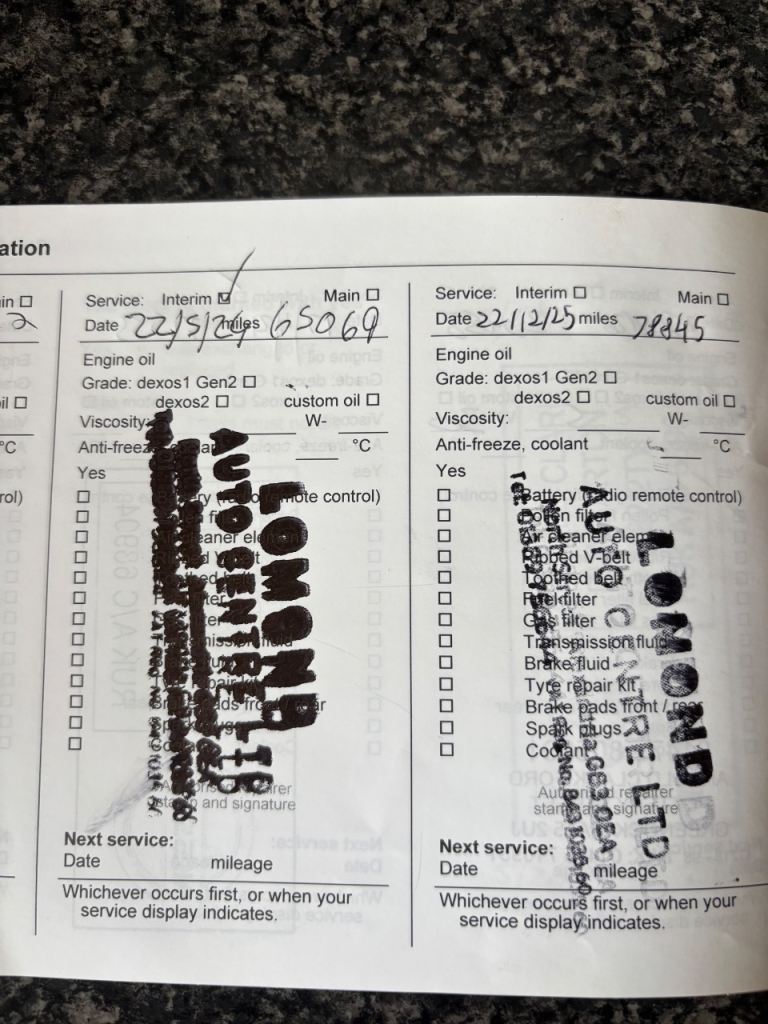 ation
in
2
il
°C
rol)
Service: Interim Main
Date 22/5/24 miles 65069
Engine oil
Grade: dexos1 Gen2
dexos2 custom oil
Viscosity: W-
Anti-freeze, coolant °C
Yes
Battery (radio remote control)
Pollen filter
Air cleaner element
Ribbed V-belt
Toothed belt
Brake pads front / rear
Authorised repairer
stamp and signature
LOMOND
AUTO CENTRE LTD
Next service:
Date mileage
Whichever occurs first, or when your
service display indicates.
Service: Interim Main
Date 22/12/25 miles 78845
Engine oil
Grade: dexos1 Gen2
dexos2 custom oil
Viscosity: W-
Anti-freeze, coolant °C
Yes
Battery (radio remote control)
Pollen filter
Air cleaner element
Ribbed V-belt
Toothed belt
Fuel filter
Gas filter
Transmission fluid
Brake fluid
Tyre repair kit
Brake pads front / rear
Spark plugs
Coolant
Authorised repairer
stamp and signature
LOMOND
AUTO CENTRE LTD
G83 0EA
Next service:
Date mileage
Whichever occurs first, or when your
service display indicates.